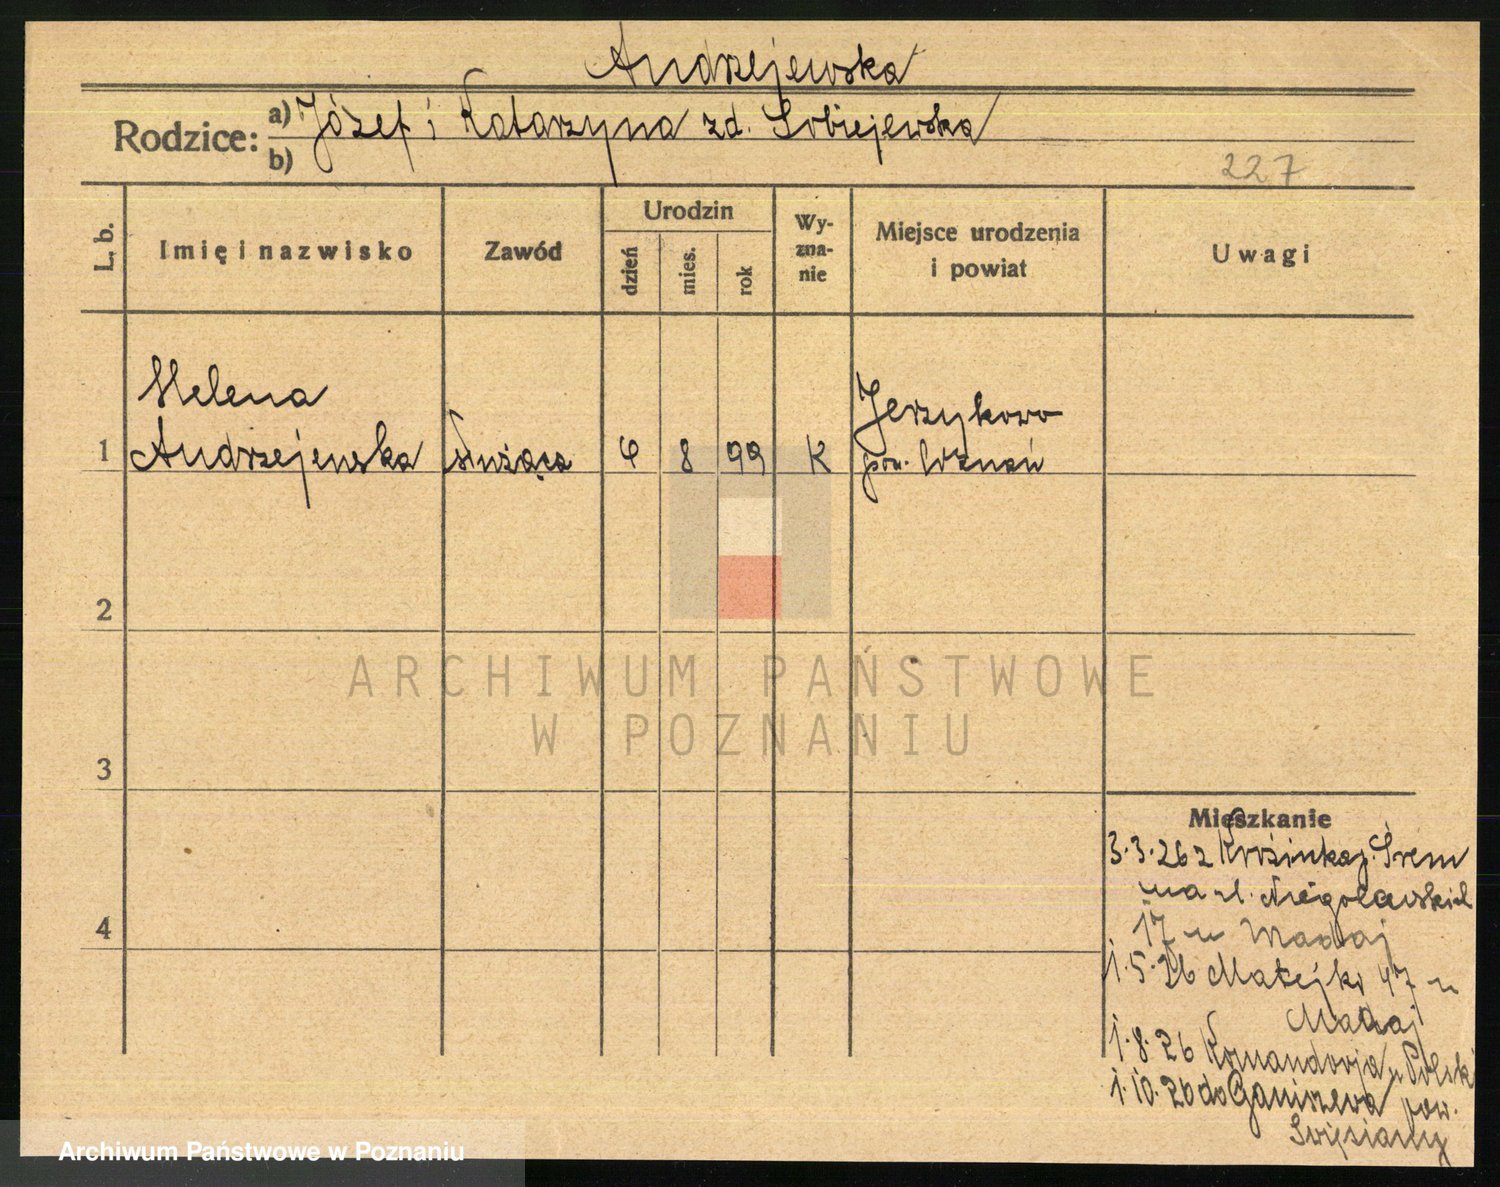 Andrzejewska
Rodzice: a) Józef i Katarzyna zd. Sobiejewska
b)
227
L. b.
Imię i nazwisko
Zawód
Urodzin
dzień
mies.
rok
Wy-
zna-
nie
Miejsce urodzenia
i powiat
Uwagi
Helena
1 Andrzejewska służąca 6 8 99 K Jerzykowo
pow. Poznań
2
3
4
ARCHIWUM PAŃSTWOWE
W POZNANIU
Mieszkanie
3.3.26 z Śrem
na ul. Niegolewskich
17 u Madaj
1.5.26 Matejki 47 u
Madaj
1.8.26 Komandorja u Polski
1.10.26 do pow.
Archiwum Państwowe w Poznaniu